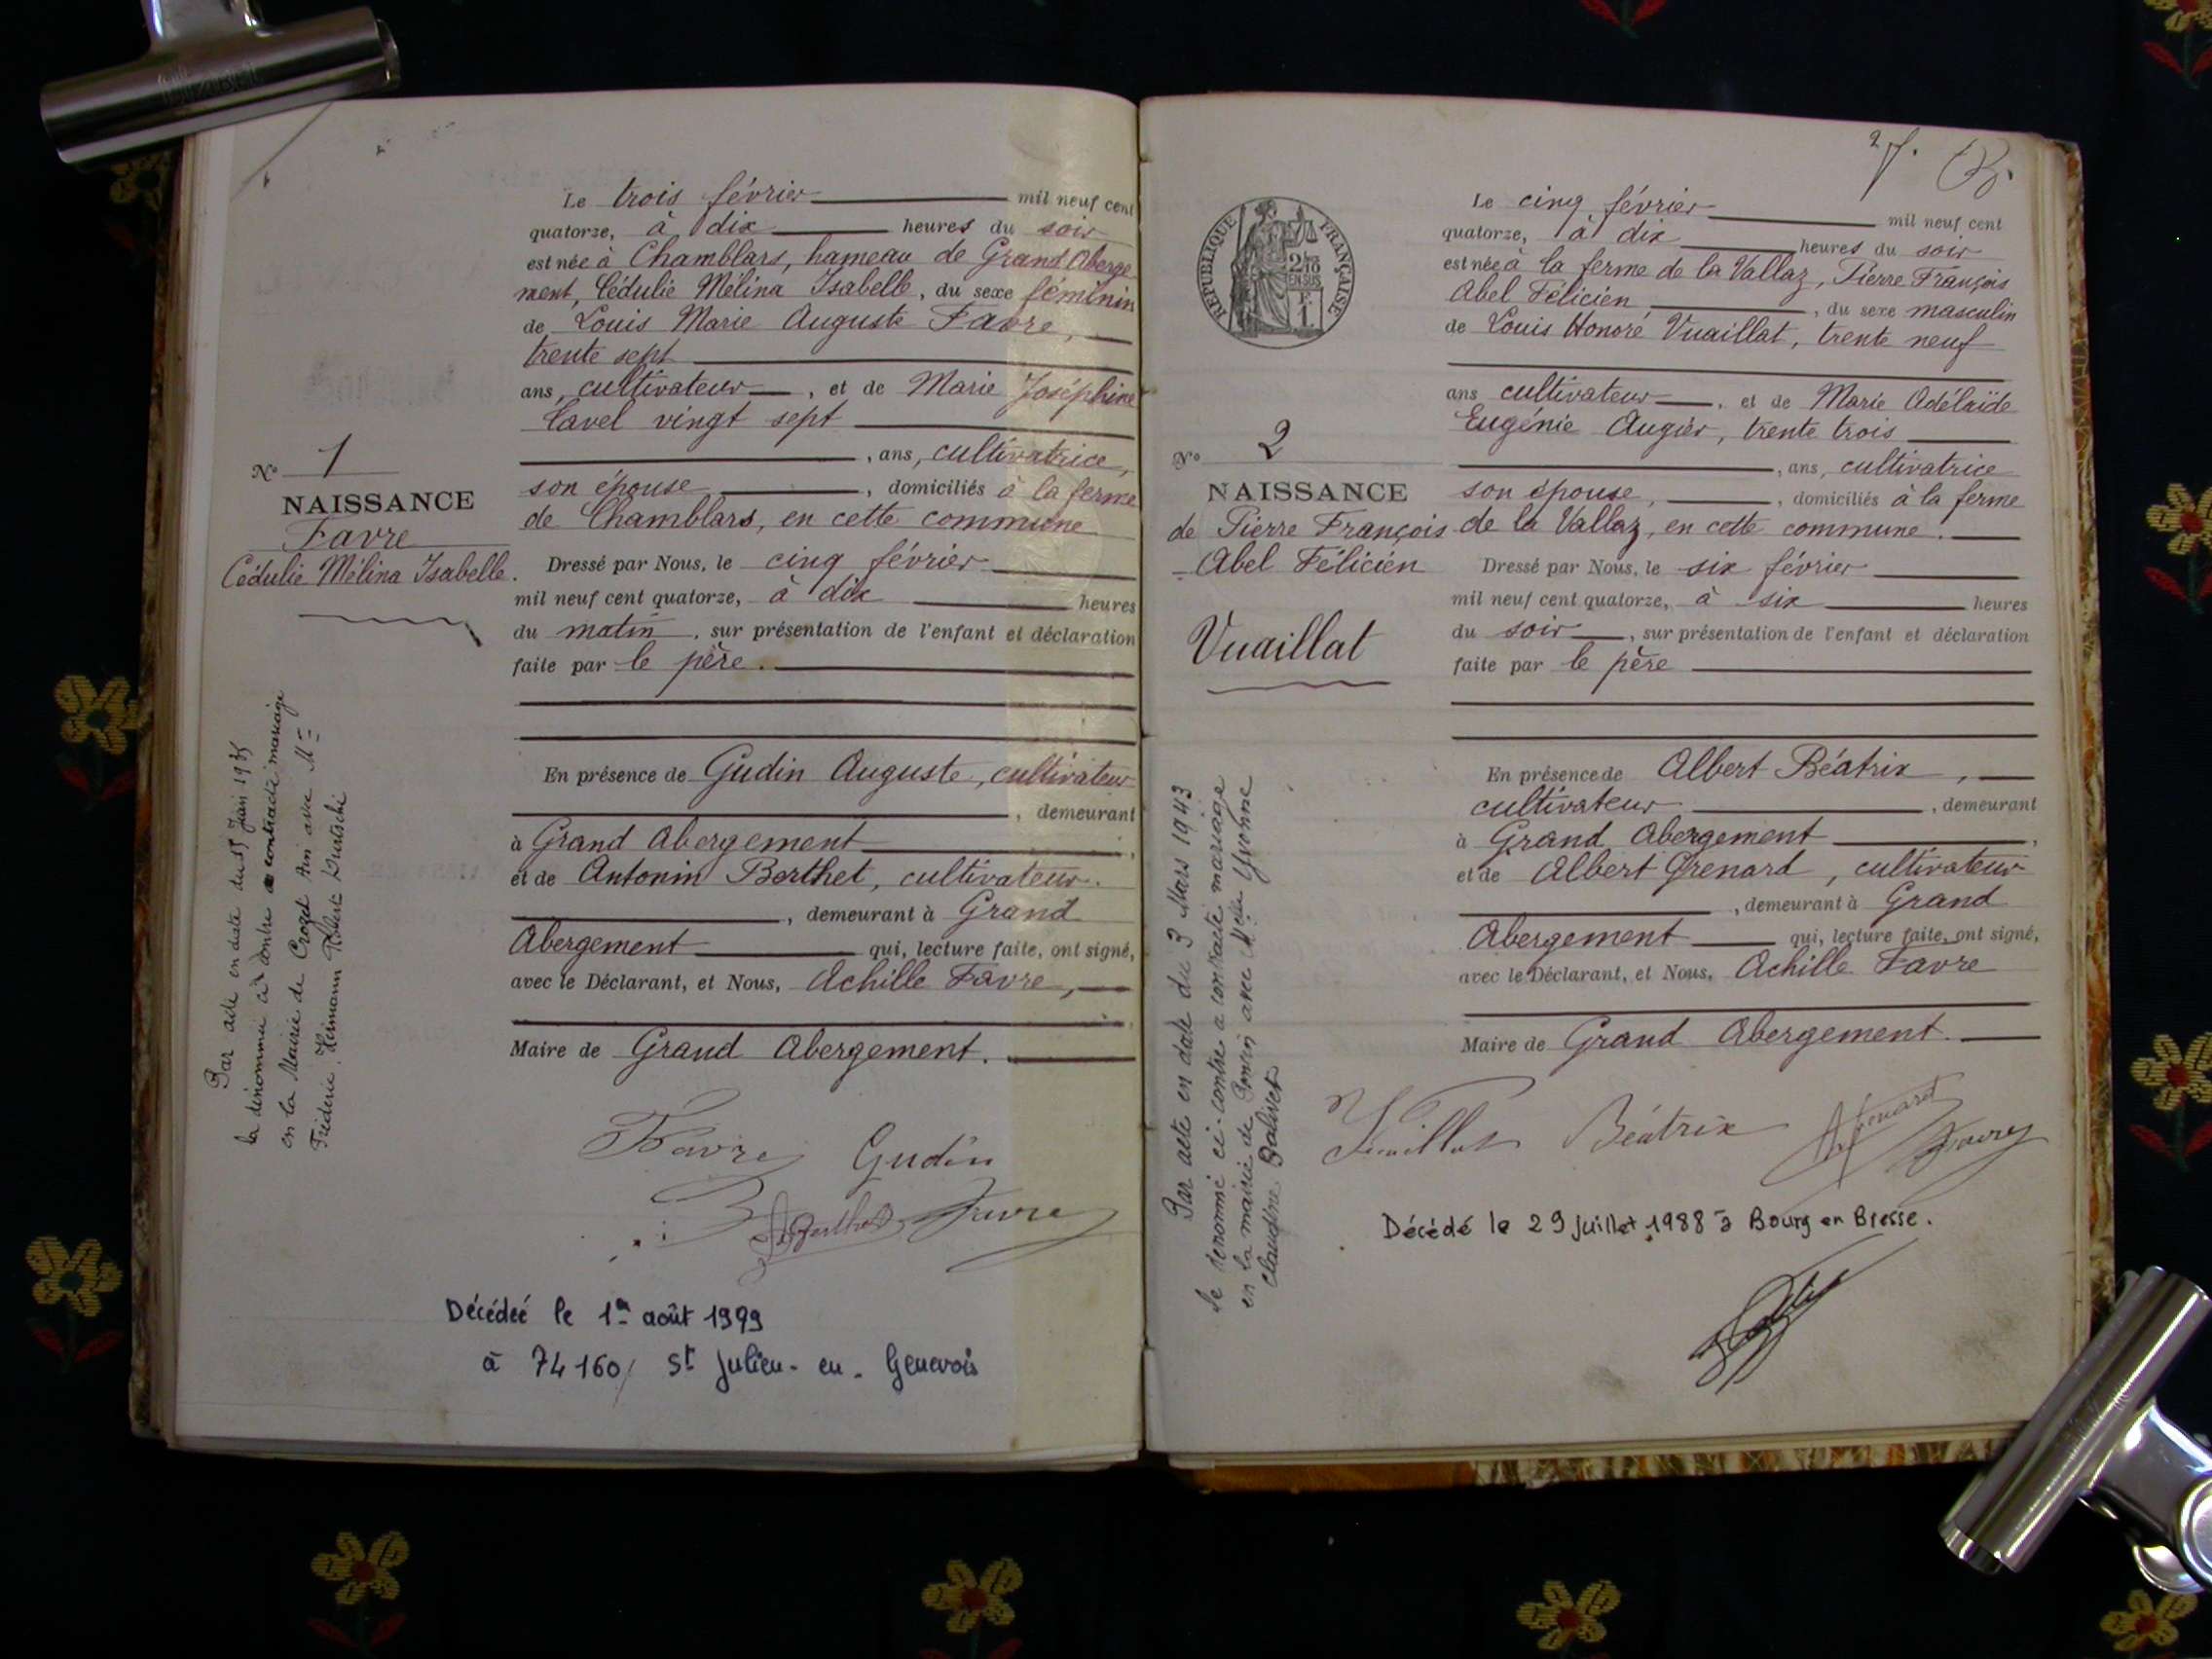 Le trois février mil neuf cent
quatorze, à dix heures du soir
est née à Chamblars, hameau de Grand Aberge
ment, Cédulie Mélina Isabelle, du sexe féminin
de Louis Marie Auguste Favre,
trente sept
ans, cultivateur, et de Marie Joséphine
Cavel vingt sept
, ans, cultivatrice,
son épouse, domiciliés à la ferme
de Chamblars, en cette commune
Dressé par Nous, le cinq février
mil neuf cent quatorze, à dix heures
du matin, sur présentation de l'enfant et déclaration
faite par le père.
En présence de Gudin Auguste, cultivateur
, demeurant
à Grand Abergement,
et de Antonin Berthet, cultivateur.
, demeurant à Grand
Abergement qui, lecture faite, ont signé,
avec le Déclarant, et Nous, Achille Favre,
Maire de Grand Abergement.
Favre Gudin
Berthet Favre
Décédée le 1er août 1999
à 74160/ St Julien-en-Genevois
No 1
NAISSANCE
Favre
Cédulie Mélina Isabelle.
Par acte en date du 15 Juin 1935
la dénommée ci contre a contracté mariage
en la Mairie de Crozet Ain avec Mr
Frédéric Hermann Robert
2
Le cinq février mil neuf cent
quatorze, à dix heures du soir
est née à la ferme de la Vallaz, Pierre François
Abel Félicien, du sexe masculin
de Louis Honoré Vuaillat, trente neuf
ans cultivateur, et de Marie Adélaïde
Eugénie Augier, trente trois
, ans, cultivatrice
son épouse, domiciliés à la ferme
de la Vallaz, en cette commune.
Dressé par Nous, le six février
mil neuf cent quatorze, à six heures
du soir, sur présentation de l'enfant et déclaration
faite par le père
En présence de Albert Béatrix,
cultivateur, demeurant
à Grand Abergement,
et de Albert Grenard, cultivateur
, demeurant à Grand
Abergement qui, lecture faite, ont signé,
avec le Déclarant, et Nous, Achille Favre
Maire de Grand Abergement.
Vuaillat Béatrix Grenard
Favre
Décédé le 29 juillet 1988 à Bourg en Bresse.
RÉPUBLIQUE FRANÇAISE
2/10
EN SUS
F.
1
No 2
NAISSANCE
de Pierre François
Abel Félicien
Vuaillat
Par acte en date du 3 Mars 1943
le dénommé ci-contre a contracté mariage
en la mairie de Poncin avec Melle Yvonne
Claudine Balivet